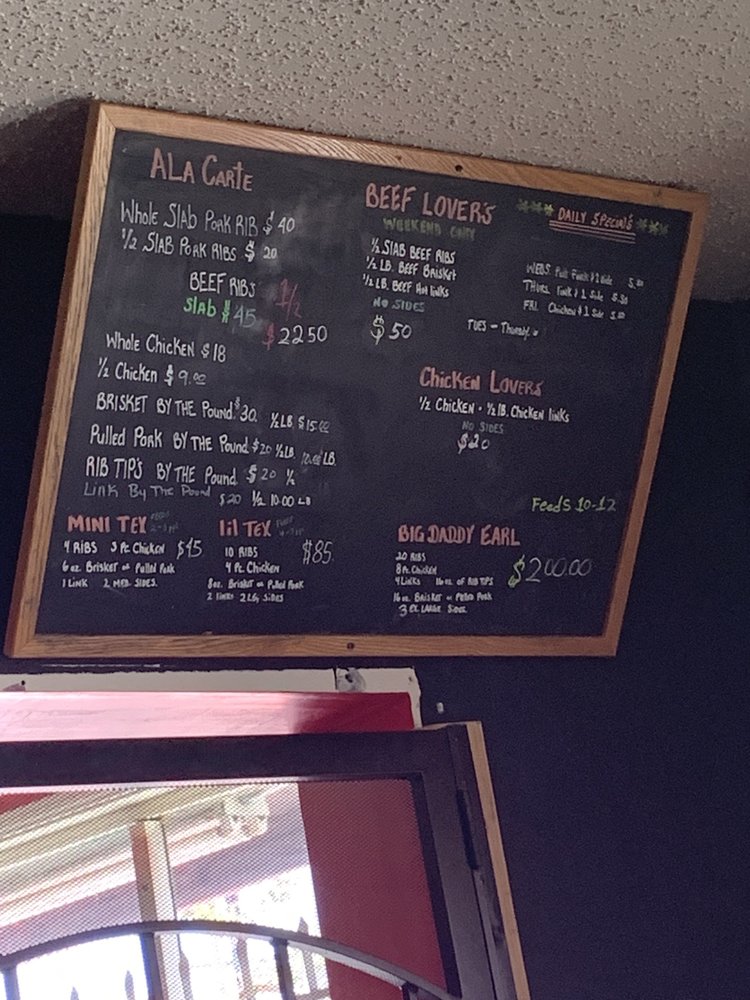 ALA CARTE
Whole Slab Pork RIB $40
1/2 SLAB PORK RIBS $ 20
BEEF RIBS 1/2
Slab $45
$2250
Whole Chicken $18
1/2 Chicken $9.00
BRISKET BY THE Pound $30. 1/2 LB $15.00
Pulled Pork BY THE Pound $20 1/2 LB. 10.00 LB.
RIB TIP'S BY THE Pound $20 1/2
Link By The Pound $20 1/2 10.00 LB
MINI TEX
4 RIBS 3 Pc Chicken $45
6 oz. Brisket or Pulled Pork
1 Link 2 MED. SIDES.
lil TEX
10 RIBS $85.
4 Pc. Chicken
8oz. Brisket or Pulled Pork
2 links 2 LG, SIDES
BEEF LOVER'S
WEEKEND ONLY
1/2 SLAB BEEF RIBS
1/2 LB. BEEF BRISKET
1/2 LB. BEEF Hot links
NO SIDES
$50
DAILY SPECIALS
WEDS. Pork & 1 Side
THUR. Link & 1 Side
FRI. Chicken & 1 Side
TUES - Thursday
Chicken LOVERS
1/2 Chicken • 1/2 lB. Chicken links
NO SIDES
$20
Feeds 10-12
BIG DADDY EARL
20 RIBS
8 Pc. Chicken $200.00
4 Links 16 oz OF RIB TIPS
16 oz Brisket or Pulled Pork
3 EX LARGE SIDES